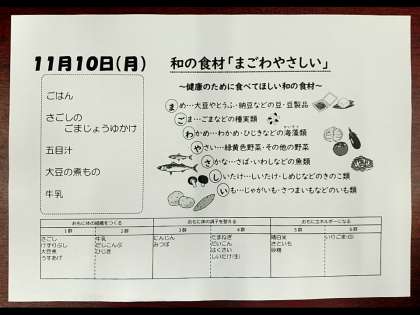 11月10日(月)
和の食材「まごわやさしい」
～健康のために食べてほしい和の食材～
ごはん
さごしの
ごまじょうゆかけ
五目汁
大豆の煮もの
牛乳
まめ…大豆やとうふ・納豆などの豆・豆製品
ごま…ごまなどの種実類
わかめ…わかめ・ひじきなどの海藻類
やさい…緑黄色野菜・その他の野菜
さかな…さば・いわしなどの魚類
しいたけ…しいたけ・しめじなどのきのこ類
いも…じゃがいも・さつまいもなどのいも類
おもに体の組織をつくる
おもに体の調子を整える
おもにエネルギーになる
1群 2群 3群 4群 5群 6群
さごし 牛乳 にんじん たまねぎ 精白米 いりごま(白)
けずりぶし だしこんぶ みつば だいこん さといも
大豆煮 ひじき はくさい 砂糖
うすあげ しいたけ(生)